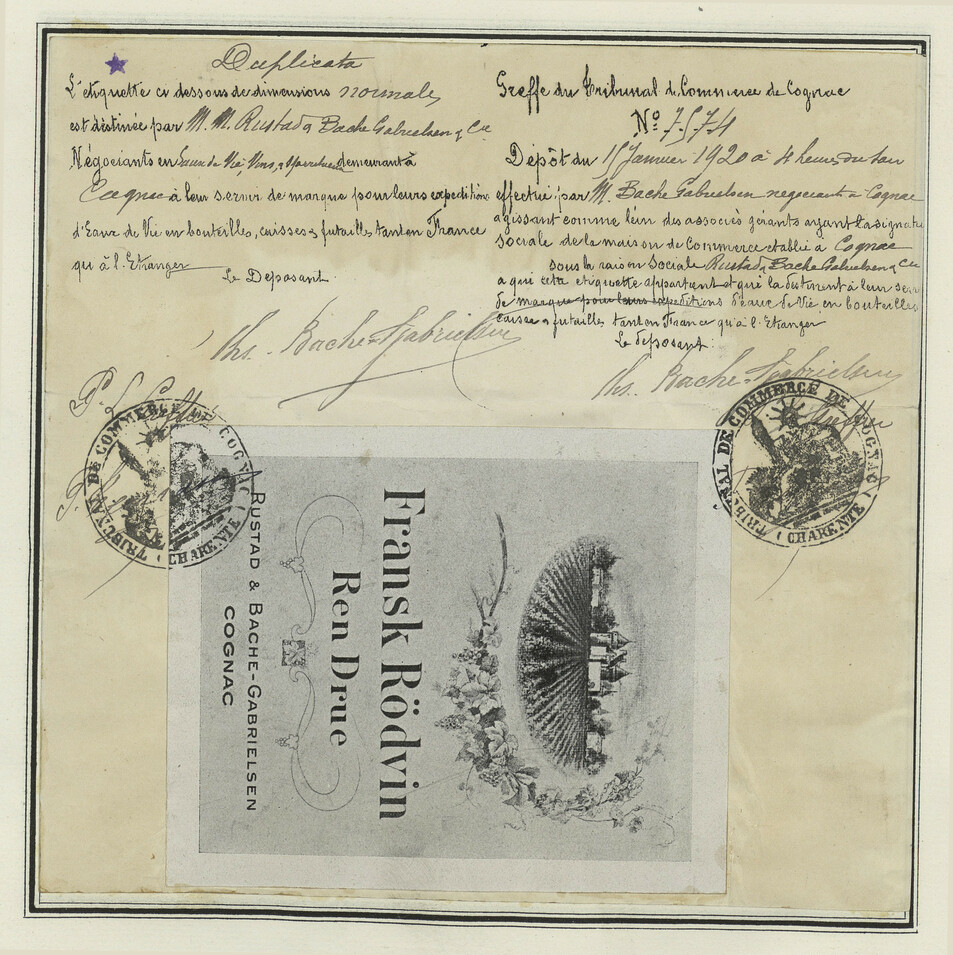 Duplicata
L'etiquette ci dessous de dimensions normales
est destinée par M. M. Rustad & Bache Gabrielsen & Cie
Négociants en Eaux de Vie, Vins, & Spiritueux demeurant à
Cognac à leur servir de marque pour leurs expeditions
d'Eaux de Vie en bouteilles, caisses & futailles tant en France
qu'à l'Etranger
Le Deposant
Ths. Bache-Gabrielsen
Greffe du Tribunal de Commerce de Cognac
No 7574
Dépôt du 15 Janvier 1920 à 4 heures du soir
effectué par M. Bache Gabrielsen negociant à Cognac
agissant comme l'un des associés gérants ayant la signature
sociale de la maison de Commerce etablie à Cognac
sous la raison Sociale Rustad & Bache Gabrielsen & Cie
a qui cette etiquette appartient et qui la destinent à leur servir
de marque pour leurs expeditions d'eaux de Vie en bouteilles
caisse & futailles tant en France qu'à l'Etranger
Le déposant:
Ths. Bache-Gabrielsen
TRIBUNAL DE COMMERCE DE COGNAC
(CHARENTE)
TRIBUNAL DE COMMERCE DE COGNAC
(CHARENTE)
Fransk Rödvin
Ren Drue
RUSTAD & BACHE-GABRIELSEN
COGNAC